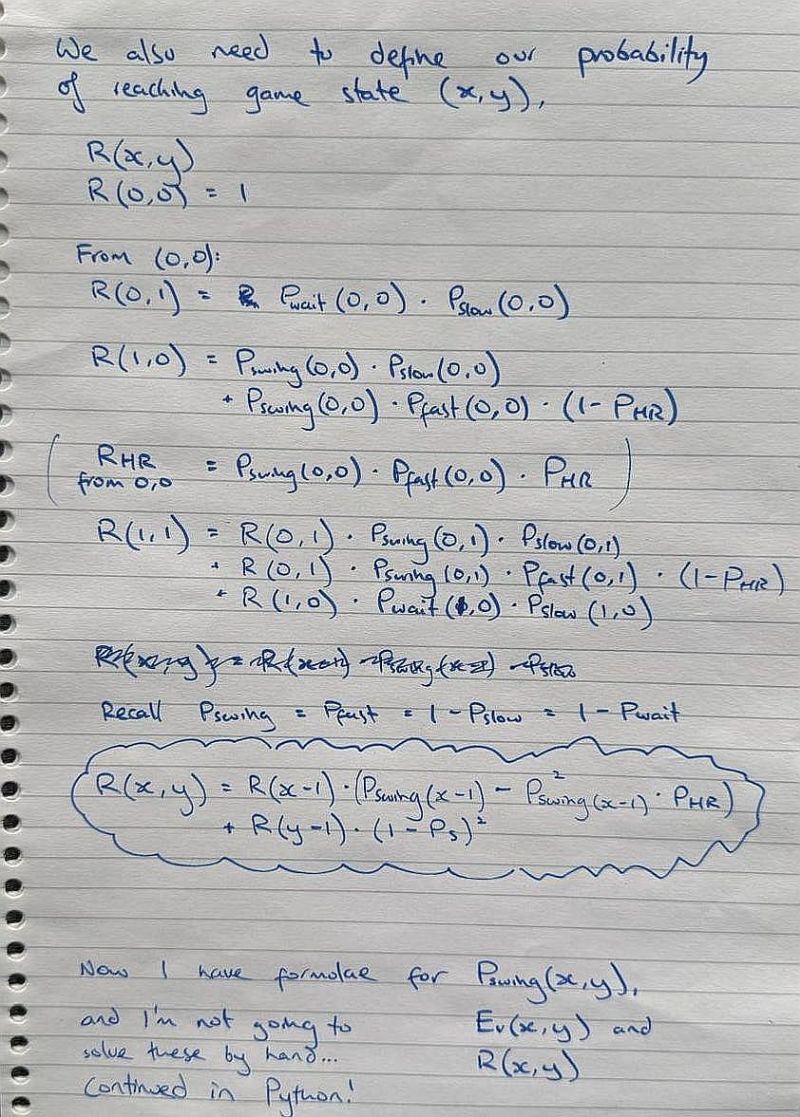 We also need to define our probability
of reaching game state (x,y),
R(x,y)
R(0,0) = 1
From (0,0):
R(0,1) = Pwait(0,0) · Pslow(0,0)
R(1,0) = Pswing(0,0) · Pslow(0,0)
+ Pswing(0,0) · Pfast(0,0) · (1-PHR)
( RHR from 0,0 = Pswing(0,0) · Pfast(0,0) · PHR )
R(1,1) = R(0,1) · Pswing(0,1) · Pslow(0,1)
+ R(0,1) · Pswing(0,1) · Pfast(0,1) · (1-PHR)
+ R(1,0) · Pwait(1,0) · Pslow(1,0)
Recall Pswing = Pfast = 1-Pslow = 1-Pwait
R(x,y) = R(x-1) · (Pswing(x-1) - P²swing(x-1) · PHR)
+ R(y-1) · (1-Ps)²
Now I have formulae for Pswing(x,y),
and I'm not going to Ev(x,y) and
solve these by hand... R(x,y)
Continued in Python!